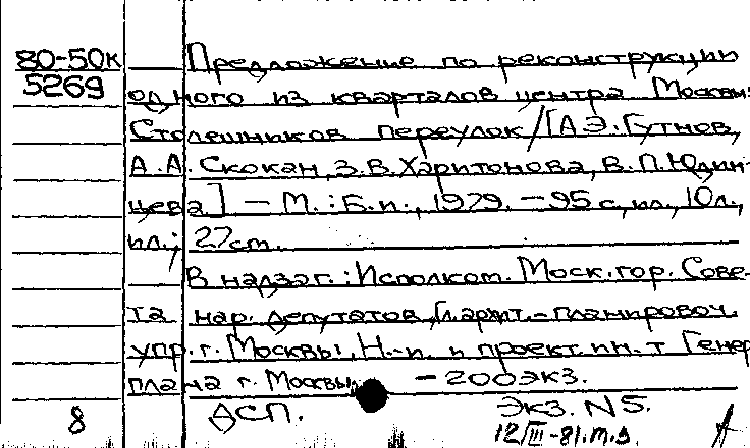 80-50к Предложение по реконструкции
5269 одного из кварталов центра Москвы:
Столешников переулок/[А.Э.Гутнов,
А.А.Скокан, З.В.Харитонова, В.П.Юдин-
цева] – М.: Б.и., 1979. – 95 с., ил., 10л.,
ил.; 27см.
В надзаг.: Исполком. Моск. гор. Сове-
та нар. депутатов, Гл. архит.-планировоч.
упр. г. Москвы, Н.-и. и проект. ин-т Генер
плана г. Москвы – 200экз.
8 ДСП. Экз. N5.
12/III-81.